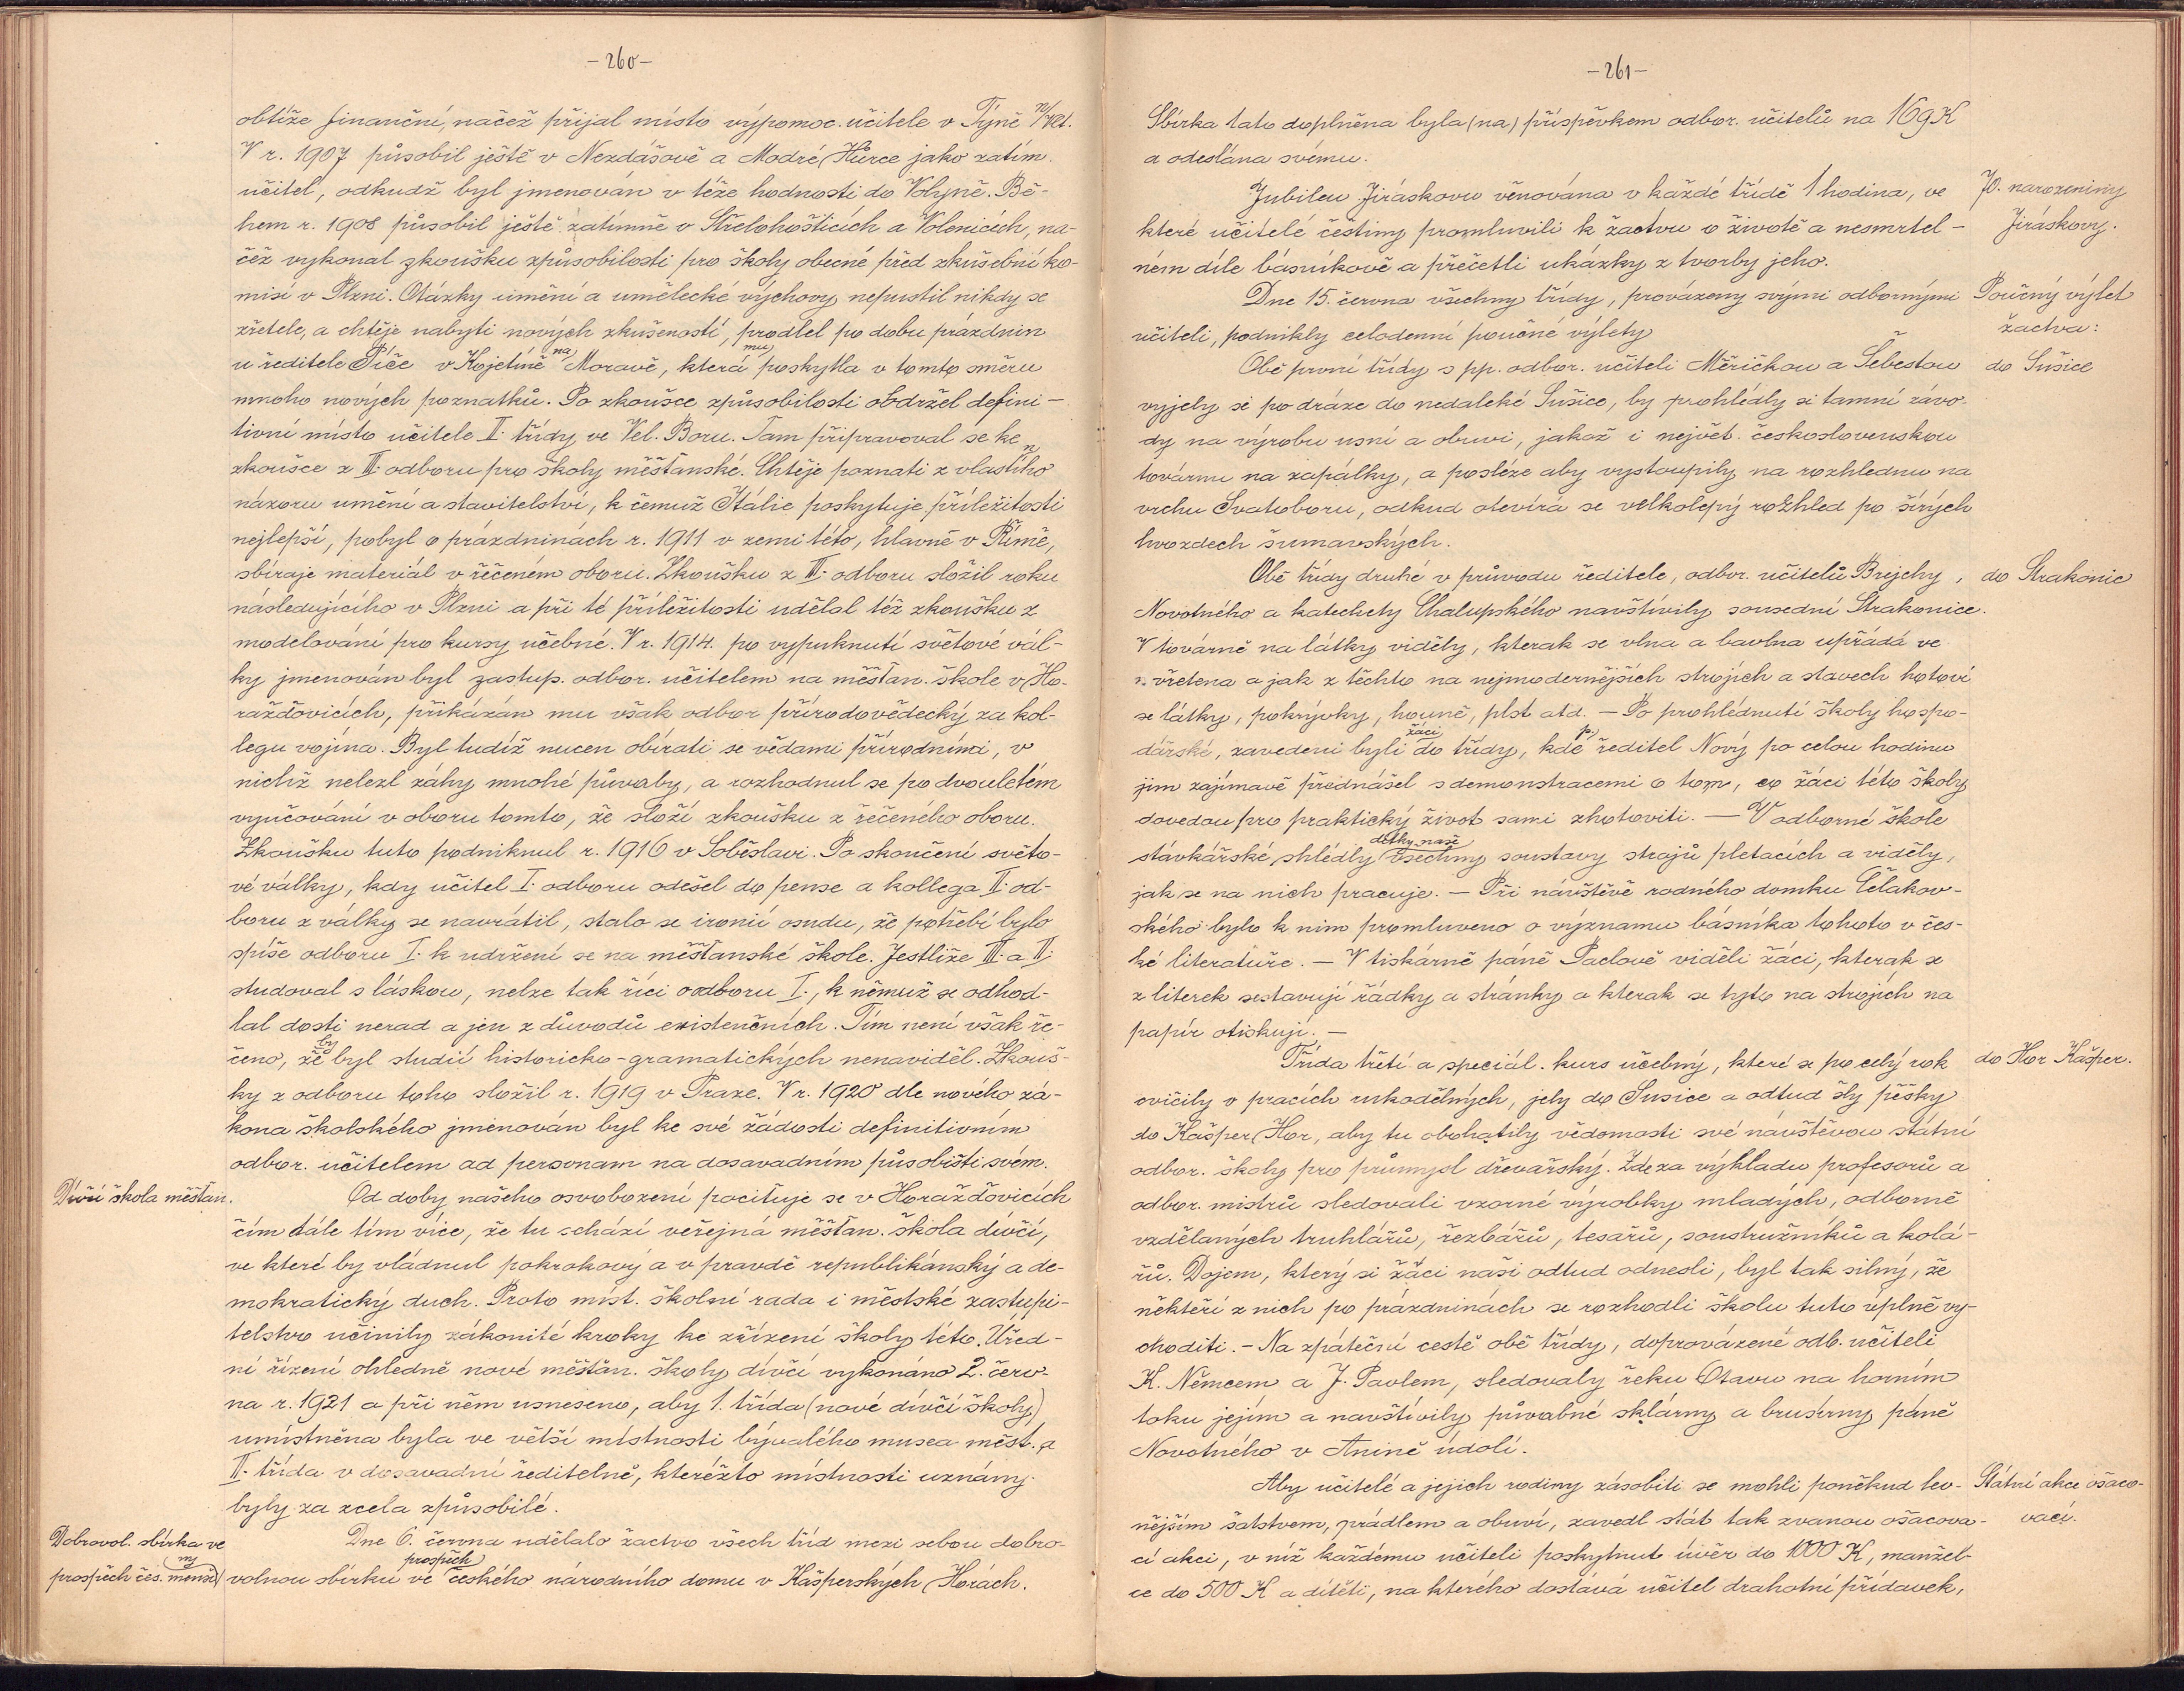 -260-
obtíže finanční, načež přijal místo výpomoc. učitele v Týně n/Vlt.
V r. 1907 působil ještě v Nezdášově a Modré Hůrce jako zatím.
učitel, odkudž byl jmenován v téže hodnosti do Volyně. Bě-
hem r. 1908 působil ještě zatímně v Střelohošticích a Volenicích, na-
čež vykonal zkoušku způsobilosti pro školy obecné před zkušební ko-
misí v Plzni. Otázky umění a umělecké výchovy nepustil nikdy se
zřetele, a chtěje nabyti nových zkušeností, prodlel po dobu prázdnin
u ředitele Píče v Kojetíně na Moravě, která mu poskytla v tomto směru
mnoho nových poznatků. Po zkoušce způsobilosti obdržel defini-
tivní místo učitele II. třídy ve Vel. Boru. Tam připravoval se ke
zkoušce z III. odboru pro školy měšťanské. Chtěje poznati z vlastního
názoru umění a stavitelství, k čemuž Itálie poskytuje příležitosti
nejlepší, pobyl o prázdninách r. 1911 v zemi této, hlavně v Římě,
sbíraje materiál v řečeném oboru. Zkoušku z III. odboru složil roku
následujícího v Plzni a při té příležitosti udělal též zkoušku z
modelování pro kursy učebné. V r. 1914. po vypuknutí světové vál-
ky jmenován byl zastup. odbor. učitelem na měšťan. škole v Ho-
ražďovicích, přikázán mu však odbor přírodovědecký za kol-
legu vojína. Byl tudíž nucen obírati se vědami přírodními, v
nichž nelezl záhy mnohé půvaby, a rozhodnul se po dvouletém
vyučování v oboru tomto, že složí zkoušku z řečeného oboru.
Zkoušku tuto podniknul r. 1916 v Soběslavi. Po skončení světo-
vé války, kdy učitel I. odboru odešel do pense a kollega II. od-
boru z války se navrátil, stalo se ironií osudu, že potřebí bylo
spíše odboru I. k udržení se na měšťanské škole. Jestliže III. a II.
studoval s láskou, nelze tak říci o odboru I., k němuž se odhod-
lal dosti nerad a jen z důvodů existenčních. Tím není však ře-
čeno, že by byl studií historicko-gramatických nenaviděl. Zkouš-
ky z odboru toho složil r. 1919 v Praze. V r. 1920 dle nového zá-
kona školského jmenován byl ke své žádosti definitivním
odbor. učitelem ad personam na dosavadním působišti svém.
Dívčí škola měšťan.
Od doby našeho osvobození pociťuje se v Horažďovicích
čím dále tím více, že tu schází veřejná měšťan. škola dívčí,
ve které by vládnul pokrokový a v pravdě republikánský a de-
mokratický duch. Proto míst. školní rada i městské zastupi-
telstvo učinily zákonité kroky ke zřízení školy této. Úřed-
ní řízení ohledně nové měšťan. školy dívčí vykonáno 2. červ-
na r. 1921 a při něm usneseno, aby 1. třída (nové dívčí školy)
umístněna byla ve větší místnosti bývalého musea měst. a
II. třída v dosavadní ředitelně, kteréžto místnosti uznány
byly za zcela způsobilé.
Dobrovol. sbírka ve
prospěch čes. menšiny
Dne 6. června udělalo žactvo všech tříd mezi sebou dobro-
volnou sbírku ve prospěch českého národního domu v Kašperských Horách.
-261-
Sbírka tato doplněna byla (na) příspěvkem odbor. učitelů na 169 K
a odeslána svému.
70. narozeniny
Jiráskovy.
Jubileu Jiráskovu věnována v každé třídě 1 hodina, ve
které učitelé češtiny promluvili k žactvu o životě a nesmrtel-
ném díle básníkově a přečetli ukázky z tvorby jeho.
Poučný výlet
žactva:
Dne 15. června všechny třídy, provázeny svými odbornými
učiteli, podnikly celodenní poučné výlety
do Sušice
Obě první třídy s pp. odbor. učiteli Měřičkou a Šebestou
vyjely si po dráze do nedaleké Sušice, by prohlédly si tamní závo-
dy na výrobu usní a obuvi, jakož i největ. československou
továrnu na zápalky, a posléze aby vystoupily na rozhlednu na
vrchu Svatoboru, odkud otevírá se velkolepý rozhled po širých
hvozdech šumavských.
do Strakonic
Obě třídy druhé v průvodu ředitele, odbor. učitelů Brejchy,
Novotného a katechety Chalupského navštívily sousední Strakonice.
V továrně na látky viděly, kterak se vlna a bavlna upřádá ve
vřetena a jak z těchto na nejmodernějších strojích a stavech hotoví
se látky, pokrývky, houně, plst atd. — Po prohlédnutí školy hospo-
dářské, zavedeni byli žáci do třídy, kde p. ředitel Nový po celou hodinu
jim zajímavě přednášel s demonstracemi o tom, co žáci této školy
dovedou pro praktický život sami zhotoviti. — V odborné škole
stávkářské shlédly dětky naše všechny soustavy strojů pletacích a viděly,
jak se na nich pracuje. — Při návštěvě rodného domku Čelakov-
ského bylo k nim promluveno o významu básníka tohoto v čes-
ké literatuře. — V tiskárně páně Paclově viděli žáci, kterak se
z literek sestavují řádky a stránky a kterak se tyto na strojích na
papír otiskují. —
do Hor Kašper.
Třída třetí a speciál. kurs učebný, které se po celý rok
cvičily v pracích rukodělných, jely do Susice a odtud šly pěšky
do Kašper. Hor, aby tu obohatily vědomosti své návštěvou státní
odbor. školy pro průmysl dřevařský. Zde za výkladu profesorů a
odbor. mistrů sledovali vzorné výrobky mladých, odborně
vzdělaných truhlářů, řezbářů, tesařů, soustružníků a kolá-
řů. Dojem, který si žáci naši odtud odnesli, byl tak silný, že
někteří z nich po prázdninách se rozhodli školu tuto úplně vy-
choditi. - Na zpáteční cestě obě třídy, doprovázené odb. učiteli
K. Němcem a J. Pavlem, sledovaly řeku Otavu na horním
toku jejím a navštívily půvabné sklárny a brusírny páně
Novotného v Annině údolí.
Státní akce ošaco-
vací.
Aby učitelé a jejich rodiny zásobiti se mohli poněkud lev-
nějším šatstvem, prádlem a obuví, zavedl stát tak zvanou ošacova-
cí akci, v níž každému učiteli poskytnut úvěr do 1000 K, manžel-
ce do 500 K a dítěti, na kterého dostává učitel drahotní přídavek,